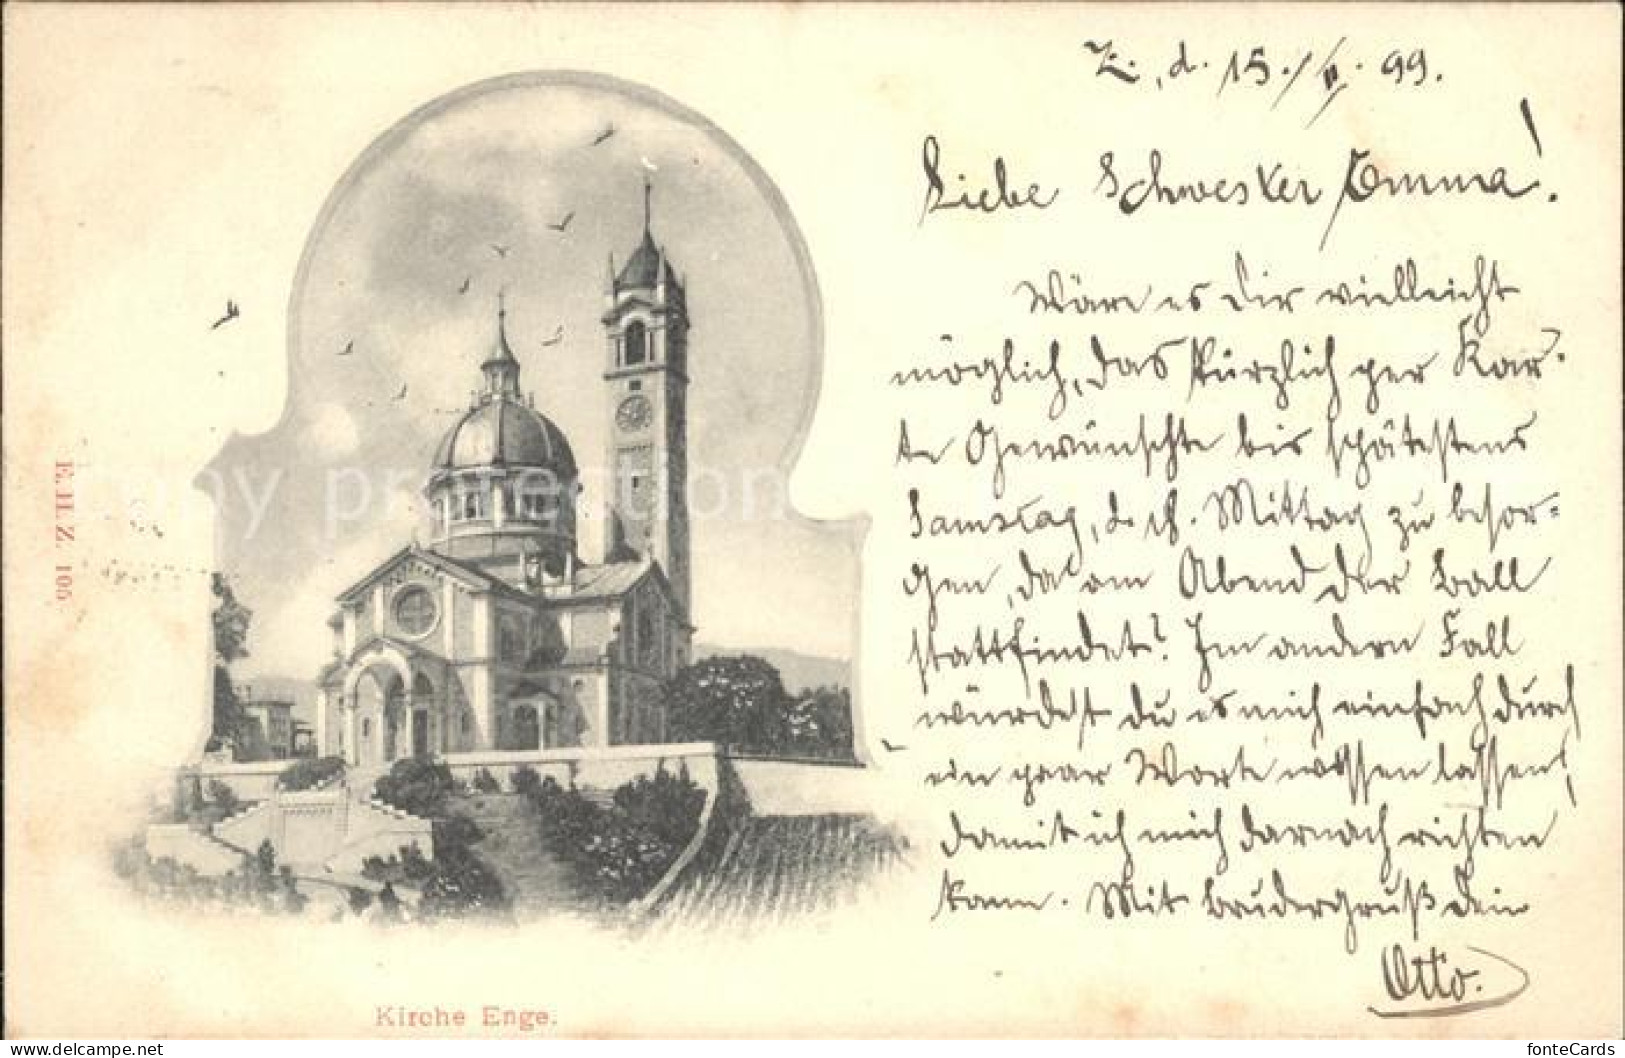 Z., d. 15./II. 99.
Liebe Schwester Emma!
Wäre es dir vielleicht
möglich, das kürzlich per Kar-
te Gewünschte bis spätestens
Samstag, d. h. Mittag zu besor-
gen, da am Abend der Ball
stattfindet? Im andern Fall
würdest du es mich einfach durch
ein paar Worte wissen lassen,
damit ich mich darnach richten
kann. Mit Brudergruß dein
Otto.
E. H. Z. 105
Kirche Enge.
my pr
fonteCards
https://www.delcampe.net